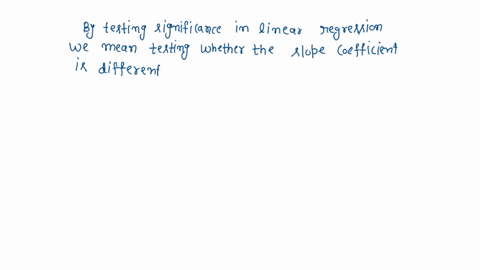 By testing significance in linear regression
we mean testing whether the slope coefficient
is different